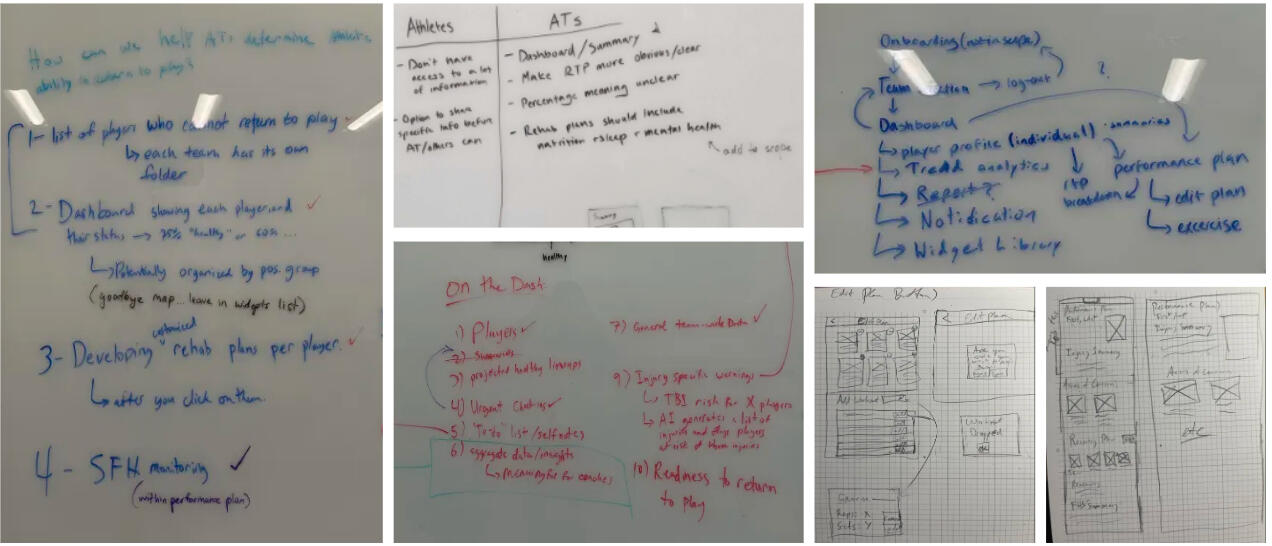 How can we help ATs determine athletes
ability to return to play?
1- list of players who cannot return to play ✓
↳ each team has its own
folder
2- Dashboard showing each player and ✓
their status → 75% "healthy" or 60% ...
↳ Potentially organized by pos. group
(goodbye map... leave in widgets list)
customized
3- Developing rehab plans per player. ✓
↳ after you click on them.
4 - SFH monitoring ✓
(within performance plan)
Athletes
- Don't have
access to a lot
of information
- Option to share
specific info before
AT/others can
ATs
- Dashboard/Summary
- Make RTP more obvious/clear
- Percentage meaning unclear
- Rehab plans should include
nutrition + sleep + mental health
add to scope
Summary
healthy
On the Dash:
1) Players ✓
2) Summaries
3) projected healthy lineups
4) Urgent Chat-ins ✓
5) "To-do" list/selfnotes
6) aggregate data/insights
↳ meaningful for coaches
7) General team-wide Data ✓
9) Injury specific warnings
↳ TBI risk for X players
↳ AI generates a list of
injuries and flags players
at risk of them injuries
10) Readiness to return
to play
Onboarding (not in scope)
Team → log-out
?
Dashboard
↳ player profile (individual) · summaries
↳ Trend analytics
↳ Report?
↳ Notification
↳ Widget Library
rtp
breakdown
performance plan
↳ edit plan
↳ excercise
Edit Plan Button)
< Edit Plan
< Edit Plan
Are you
Add Workout
Workout
Dropped
OK
Reps: X
Sets: Y
Performance Plan
Injury Summary
Areas of Concern
Recovery Plan
Performance Plan
First/Last
Injury Summary
Areas of Concern
etc